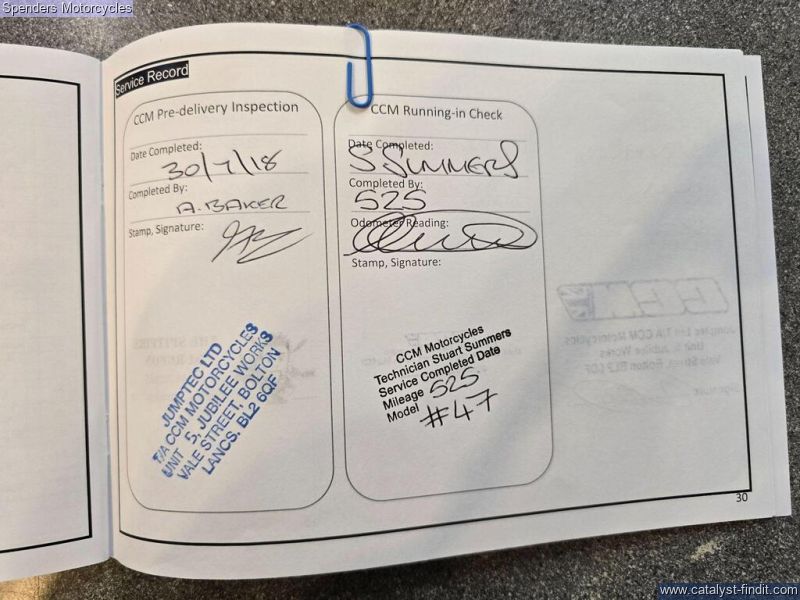 Spenders Motorcycles
Service Record
CCM Pre-delivery Inspection
Date Completed:
30/7/18
Completed By:
A. BAKER
Stamp, Signature:
JUMPTEC LTD
T/A CCM MOTORCYCLES
UNIT 5, JUBILEE WORKS
VALE STREET, BOLTON
LANCS. BL2 6QF
CCM Running-in Check
Date Completed:
S SUMMERS
Completed By:
525
Odometer Reading:
Stamp, Signature:
CCM Motorcycles
Technician Stuart Summers
Service Completed Date
Mileage 525
Model #47
30
www.catalyst-findit.com